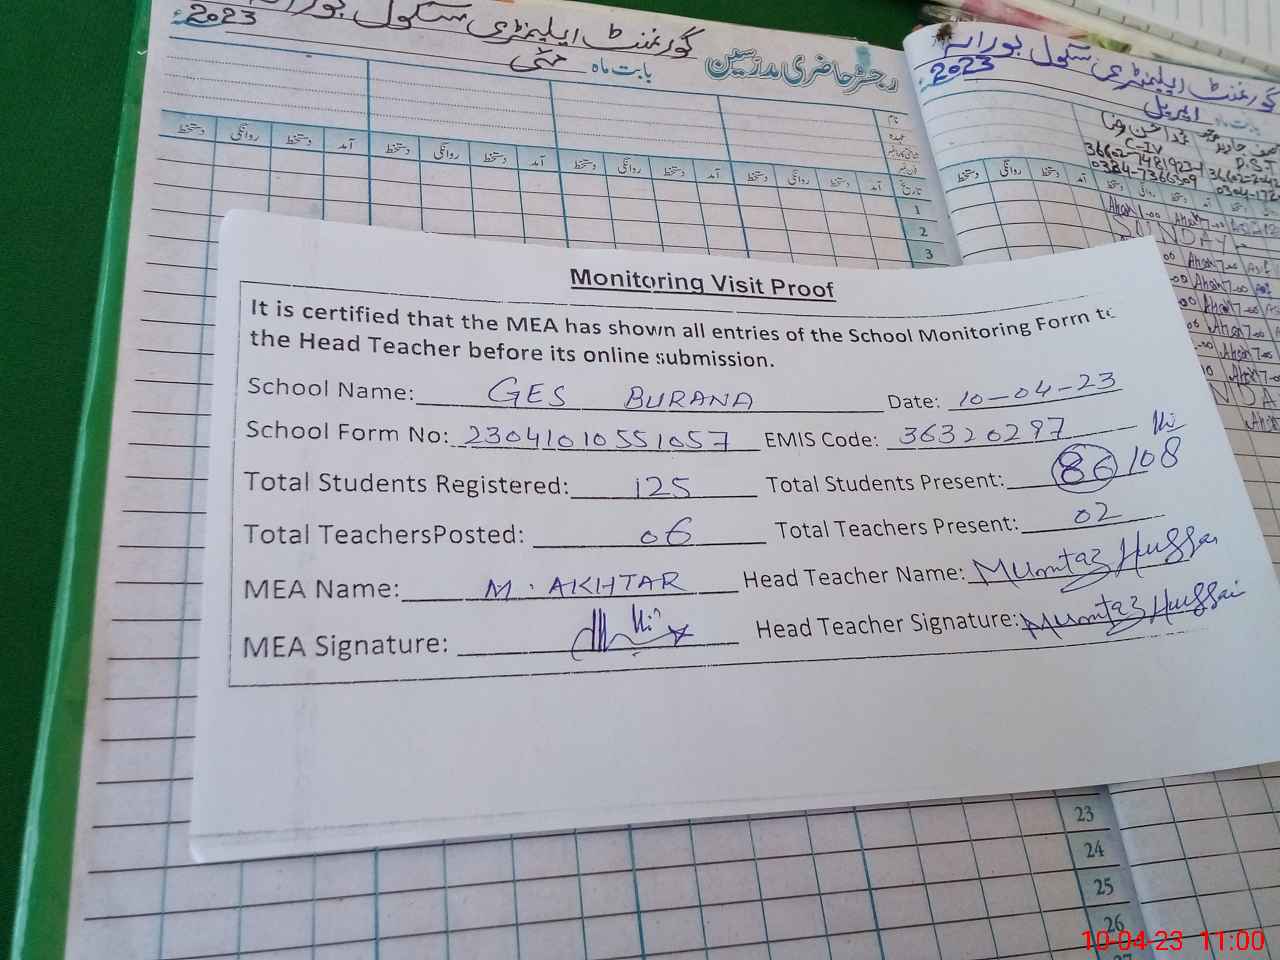 گورنمنٹ ایلیمنٹری سکول بورانہ
2023ء
رجسٹر حاضری مدرسین
بابت ماہ مئی
نام
عہدہ
تاریخ
آمد دستخط روانگی دستخط آمد دستخط روانگی دستخط آمد دستخط روانگی دستخط آمد دستخط روانگی دستخط
1
2
3
گورنمنٹ ایلیمنٹری سکول بورانہ
2023ء
بابت ماہ اپریل
C-IV
P.S.T
آمد دستخط روانگی دستخط
SUNDAY
Monitoring Visit Proof
It is certified that the MEA has shown all entries of the School Monitoring Form to
the Head Teacher before its online submission.
School Name: GES BURANA Date: 10-04-23
School Form No: 23041010551057 EMIS Code: 36320297
Total Students Registered: 125 Total Students Present: 86 108
Total TeachersPosted: 06 Total Teachers Present: 02
MEA Name: M. AKHTAR Head Teacher Name: Mumtaz Hussai
MEA Signature: Head Teacher Signature: Mumtaz Hussai
23
24
25
26
27
10-04-23 11:00